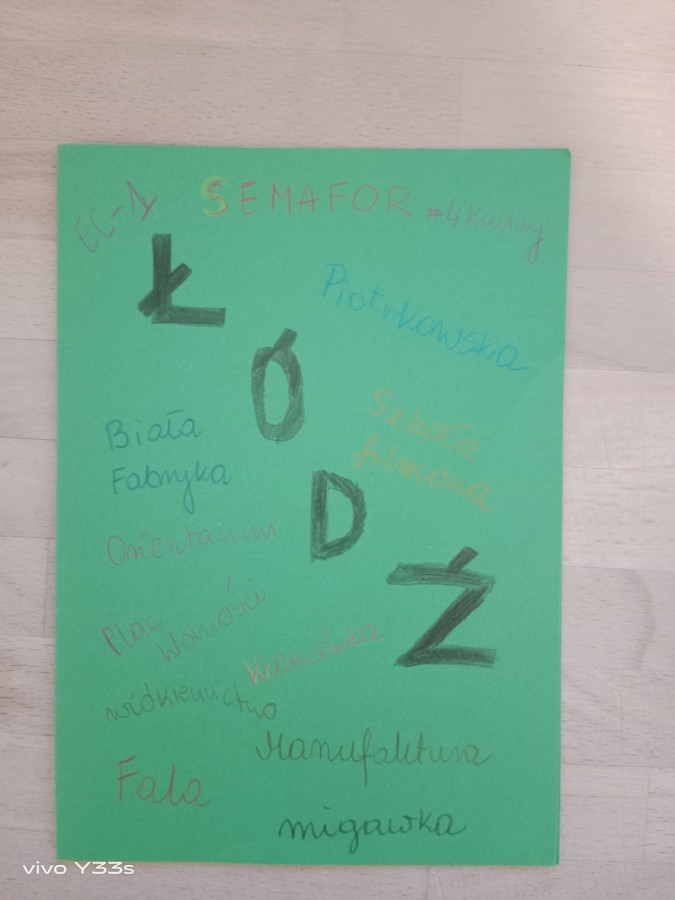 EC-1
SEMAFOR
#4Kultury
Ł
Piotrkowska
Ó
Szkoła
filmowa
Biała
Fabryka
D
Orientarium
Plac
Wolności
Ź
włókiennictwo
Manufaktura
Fala
migawka
vivo Y33s